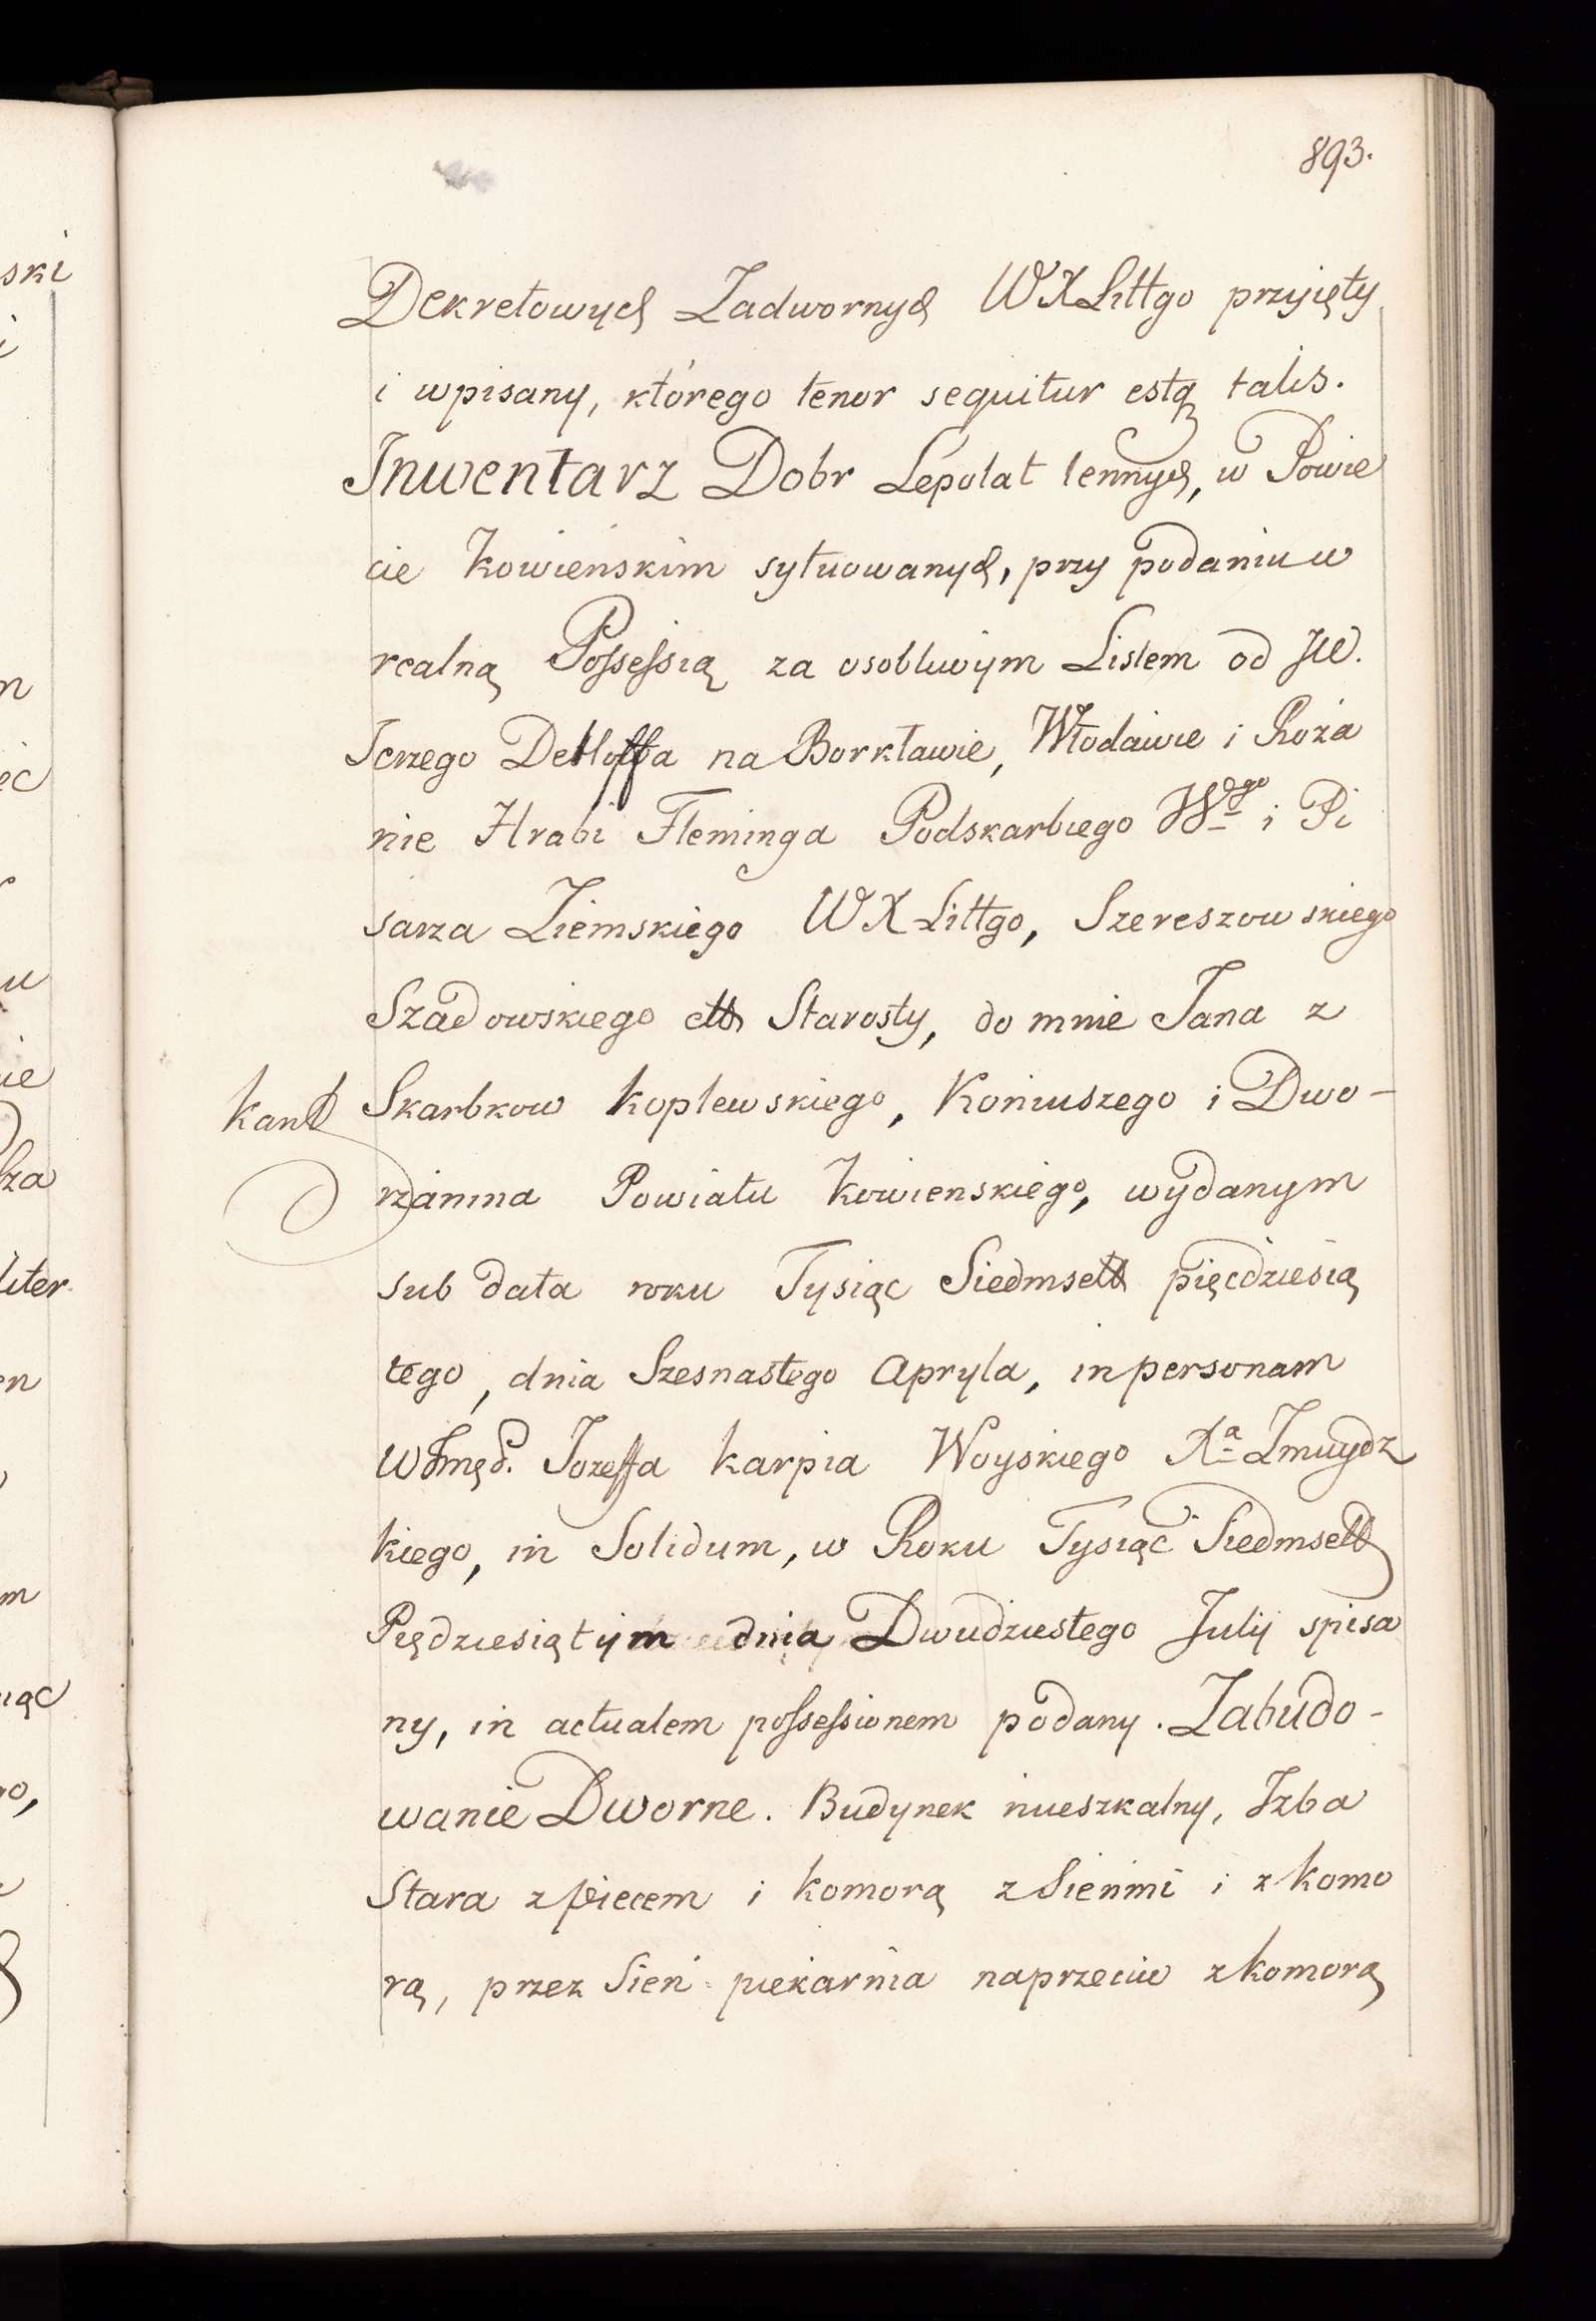 893.
Dekretowych Zadwornych WXLittgo przyięty
i wpisany, którego tenor sequitur estq talis.
Inwentarz Dobr Lepolat lennych, w Powie
cie Kowieńskim sytuowanych, przy podaniu w
realną Possessią za osobliwym Listem od JW.
Jerzego Detloffa na Borkławie, Włodawie i Roża
nie Hrabi Fleminga Podskarbiego Wdgo i Pi
sarza Ziemskiego WXLittgo, Szereszowskiego
Szadowskiego ett Starosty, do mnie Jana z
Skarbkow Koplewskiego, Koniuszego i Dwo-
rzanina Powiatu Kowienskiego, wydanym
sub data roku Tysiąc Siedmsett pięcdziesią
tego, dnia Szesnastego Apryla, in personam
Jozeffa Karpia Woyskiego Xa Zmuydz
kiego, in Solidum, w Roku Tysiąc Siedmsett
Piędziesiątym dnia Dwudziestego July spisa
ny, in actualem possessionem podany. Zabudo-
wanie Dworne. Budynek mieszkalny, Izba
Stara z piecem i komorą z Sieńmi i z komo
rą, przez Sień piekarnia naprzeciw z komorą